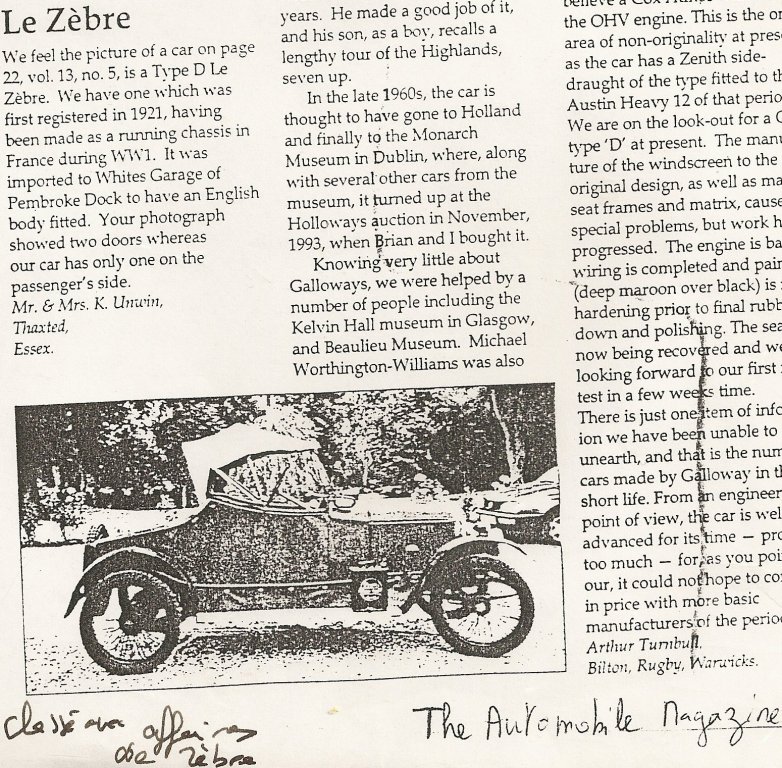 Le Zèbre
We feel the picture of a car on page
22, vol. 13, no. 5, is a Type D Le
Zèbre. We have one which was
first registered in 1921, having
been made as a running chassis in
France during WW1. It was
imported to Whites Garage of
Pembroke Dock to have an English
body fitted. Your photograph
showed two doors whereas
our car has only one on the
passenger's side.
Mr. & Mrs. K. Unwin,
Thaxted,
Essex.
years. He made a good job of it,
and his son, as a boy, recalls a
lengthy tour of the Highlands,
seven up.
In the late 1960s, the car is
thought to have gone to Holland
and finally to the Monarch
Museum in Dublin, where, along
with several other cars from the
museum, it turned up at the
Holloways auction in November,
1993, when Brian and I bought it.
Knowing very little about
Galloways, we were helped by a
number of people including the
Kelvin Hall museum in Glasgow,
and Beaulieu Museum. Michael
Worthington-Williams was also
believe a Cox
the OHV engine. This is the on
area of non-originality at prese
as the car has a Zenith side-
draught of the type fitted to th
Austin Heavy 12 of that perio
We are on the look-out for a C
type 'D' at present. The manu
ture of the windscreen to the
original design, as well as ma
seat frames and matrix, cause
special problems, but work h
progressed. The engine is ba
wiring is completed and pain
(deep maroon over black) is
hardening prior to final rubb
down and polishing. The sea
now being recovered and we
looking forward to our first
test in a few weeks time.
There is just one item of info
ion we have been unable to
unearth, and that is the num
cars made by Galloway in th
short life. From an engineer
point of view, the car is wel
advanced for its time — pro
too much — for, as you poi
our, it could not hope to co
in price with more basic
manufacturers of the perio
Arthur Turnbull,
Bilton, Rugby, Warwicks.
Classé aux affaires
de zèbre
The Automobile Magazine